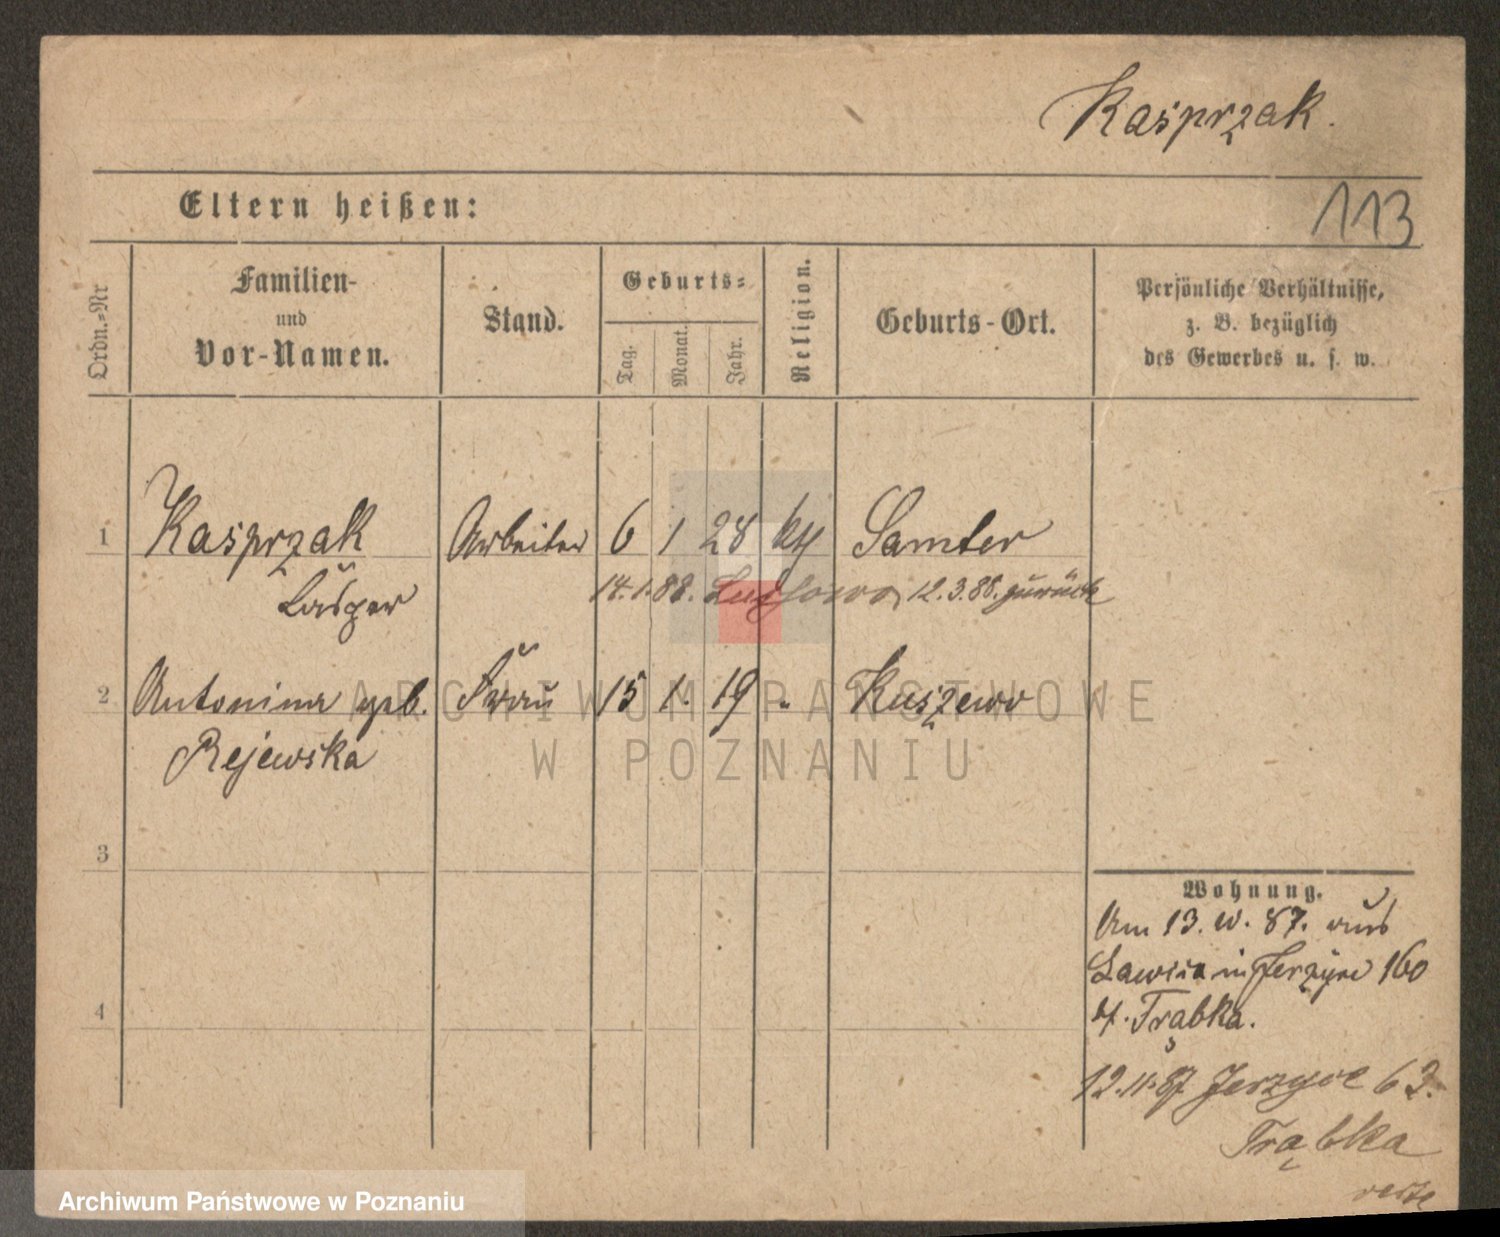 Kasprzak.
Eltern heißen:
113
Ordn.-Nr
Familien-
und
Vor-Namen.
Stand.
Geburts-
Tag.
Monat.
Jahr.
Religion.
Geburts-Ort.
Persönliche Verhältnisse,
z. B. bezüglich
des Gewerbes u. s. w.
1 Kasprzak Arbeiter 6 1 28 Samter
14.1.88. 12.3.88. zurück
2 Antonina geb. Frau 15 1. 19 " Kuszewo
Rejewska
3
Wohnung.
Am 13. 87. aus
Lawica in 160
Trąbka.
4
12.11.87 Jerzyce 62.
Trąbka
ARCHIWUM PAŃSTWOWE
W POZNANIU
Archiwum Państwowe w Poznaniu